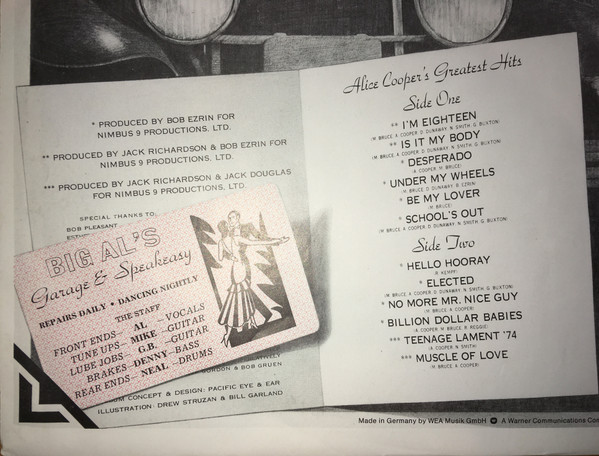 * PRODUCED BY BOB EZRIN FOR
NIMBUS 9 PRODUCTIONS, LTD.
** PRODUCED BY JACK RICHARDSON & BOB EZRIN FOR
NIMBUS 9 PRODUCTIONS, LTD.
*** PRODUCED BY JACK RICHARDSON & JACK DOUGLAS
FOR NIMBUS 9 PRODUCTIONS, LTD.
SPECIAL THANKS TO:
BOB PLEASANT
BIG AL'S
Garage & Speakeasy
REPAIRS DAILY • DANCING NIGHTLY
THE STAFF
FRONT ENDS– AL –VOCALS
TUNE UPS– MIKE –GUITAR
LUBE JOBS– G.B. –GUITAR
BRAKES– DENNY –BASS
REAR ENDS– NEAL –DRUMS
& BOB GRUEN
CONCEPT & DESIGN: PACIFIC EYE & EAR
ILLUSTRATION: DREW STRUZAN & BILL GARLAND
Alice Cooper's Greatest Hits
Side One
** I'M EIGHTEEN
(M. BRUCE A. COOPER D. DUNAWAY N. SMITH G. BUXTON)
** IS IT MY BODY
(M. BRUCE A. COOPER D. DUNAWAY N. SMITH G. BUXTON)
** DESPERADO
(A. COOPER M. BRUCE)
* UNDER MY WHEELS
(M. BRUCE D. DUNAWAY B. EZRIN)
* BE MY LOVER
(M. BRUCE)
* SCHOOL'S OUT
(M. BRUCE A. COOPER D. DUNAWAY N. SMITH G. BUXTON)
Side Two
* HELLO HOORAY
(R. KEMPF)
* ELECTED
(M. BRUCE A. COOPER D. DUNAWAY N. SMITH G. BUXTON)
* NO MORE MR. NICE GUY
(M. BRUCE A. COOPER)
* BILLION DOLLAR BABIES
(A. COOPER M. BRUCE R. REGGIE)
*** TEENAGE LAMENT '74
(A. COOPER N. SMITH)
*** MUSCLE OF LOVE
(M. BRUCE A. COOPER)
Made in Germany by WEA Musik GmbH A Warner Communications